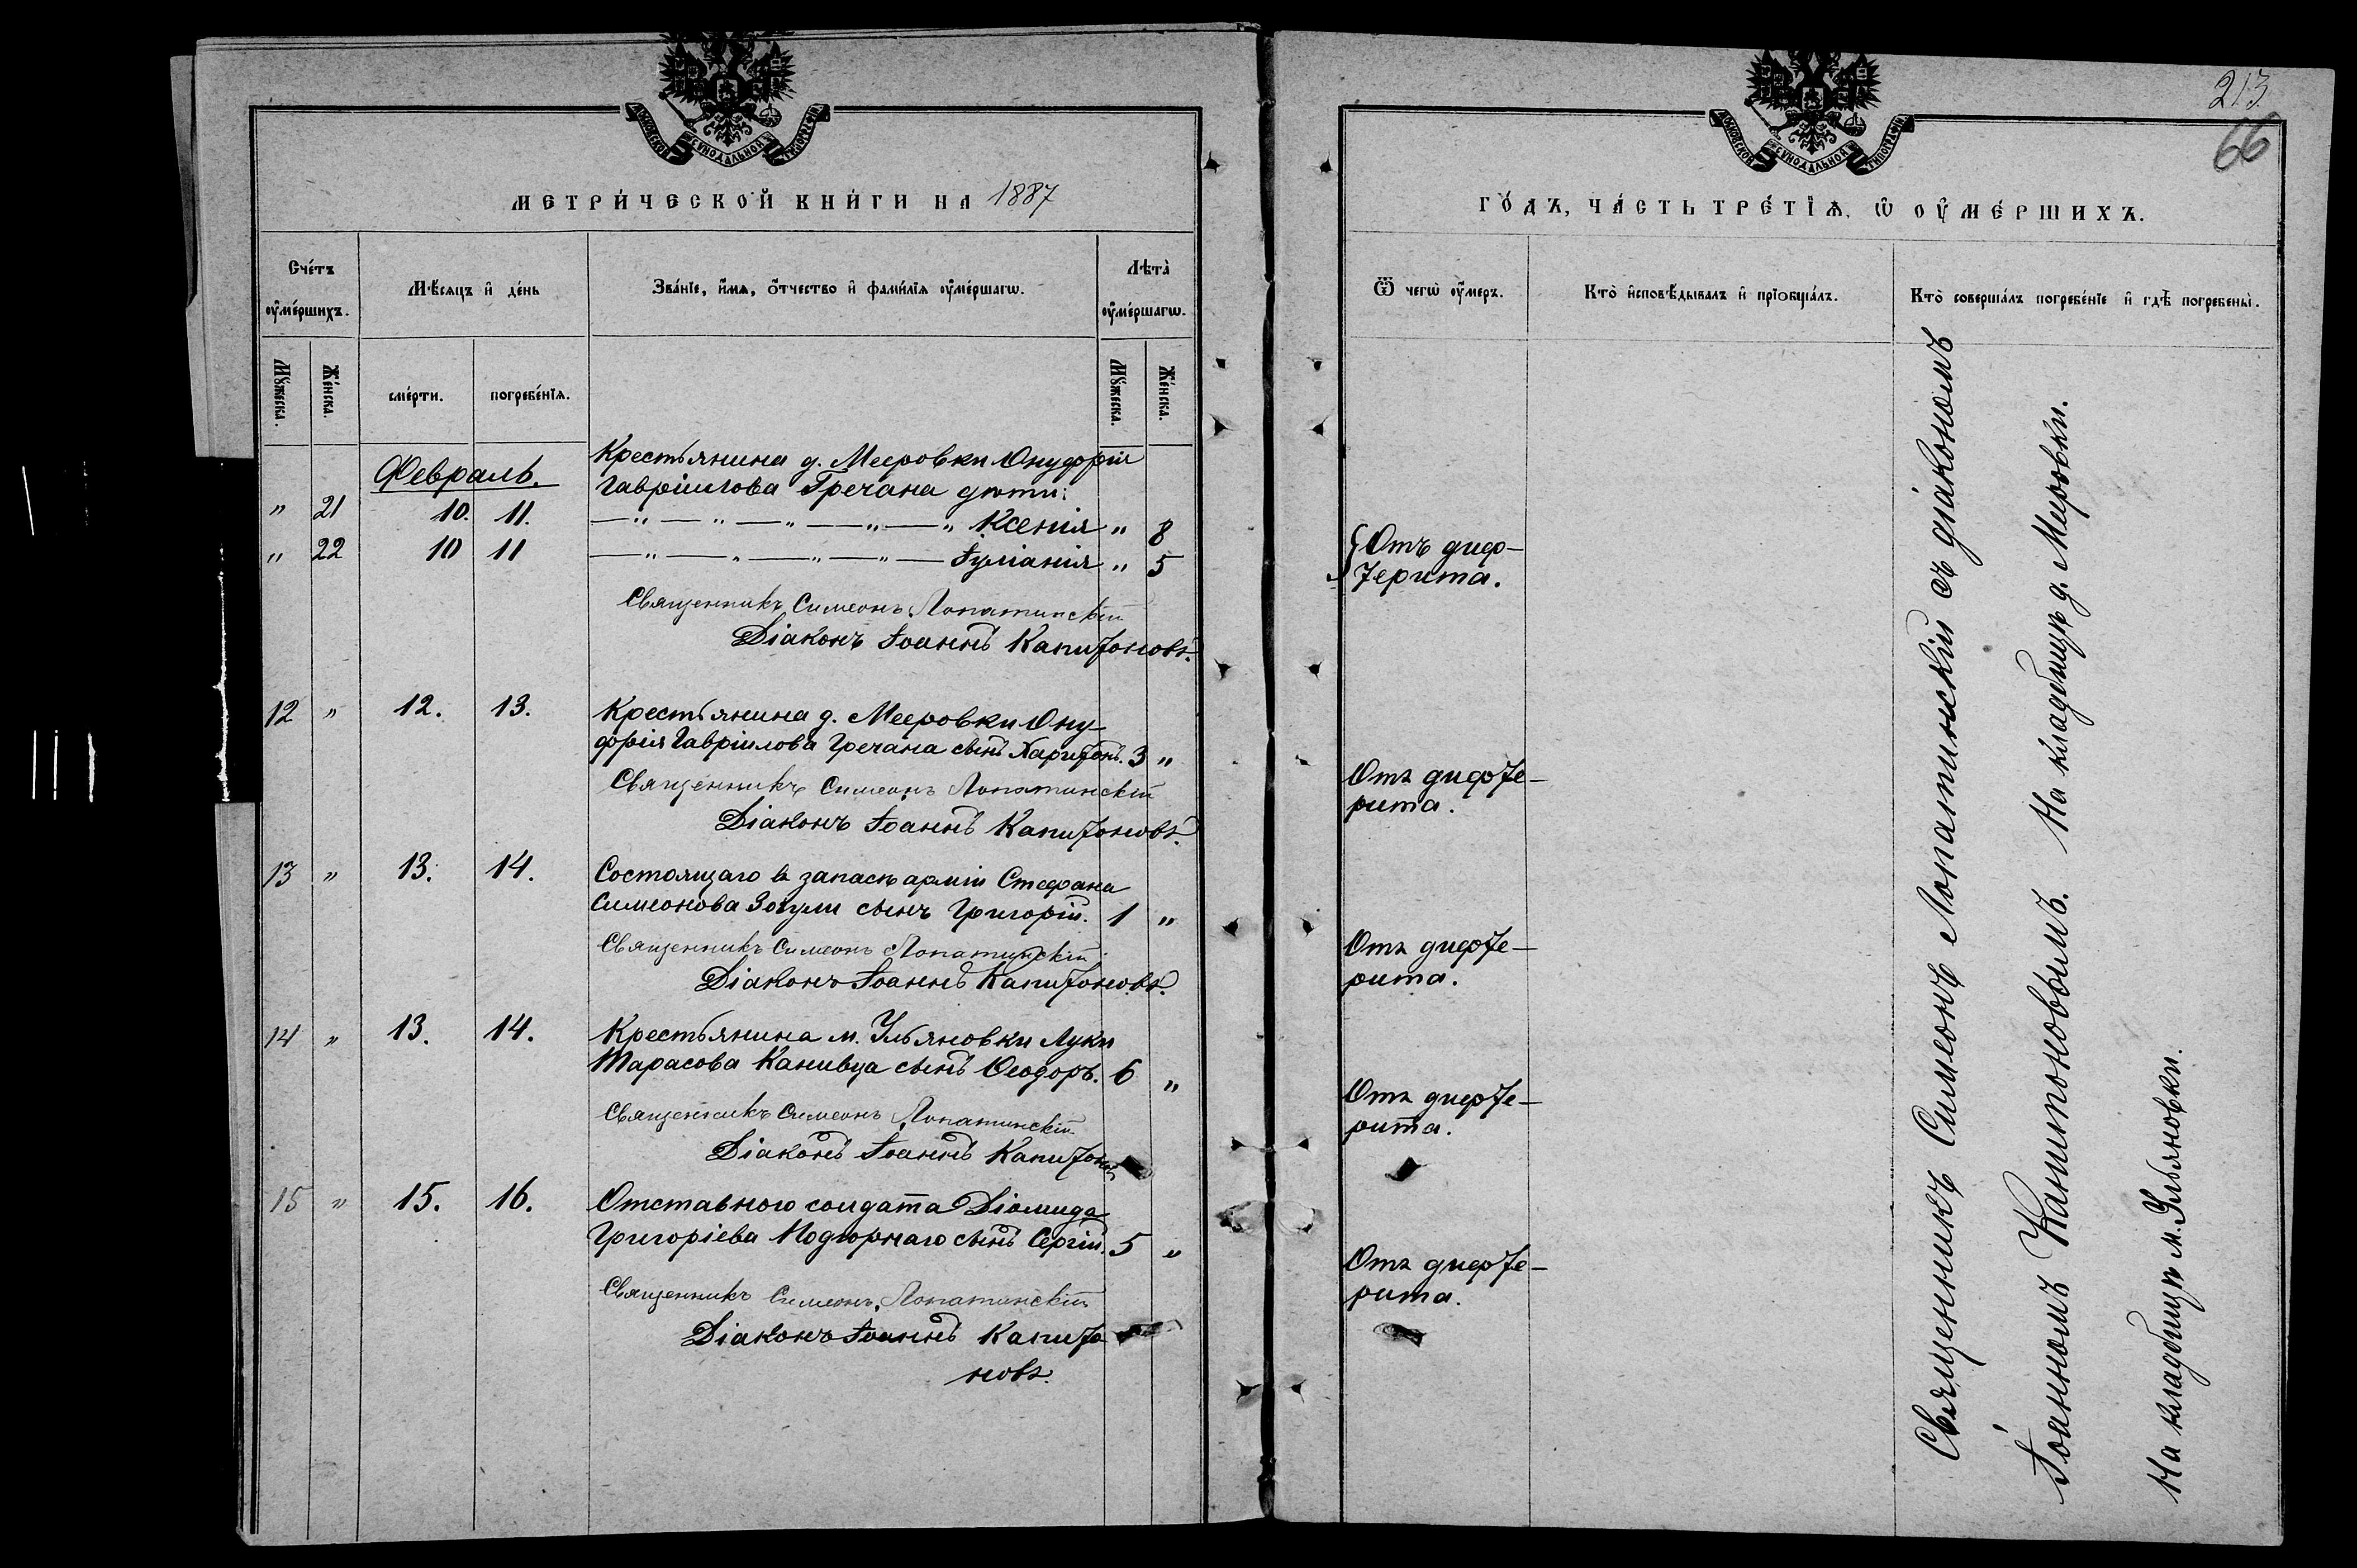 МОСКОВСКОЙ СѴНОДАЛЬНОЙ ТИПОГРАФІИ
МЕТРИ́ЧЕСКОЙ КНИ́ГИ НА 1887
Сче́тъ ᲂу҆ме́ршихъ.
Мѣ́сяцъ и҆ де́нь
Зва́нїе, и҆́мя, ѻ҆́тчество и҆ фами́лїя ᲂу҆ме́ршагѡ.
Лѣта̀ ᲂу҆ме́ршагѡ.
Мꙋ́жеска.
Же́нска.
сме́рти.
погребе́нїѧ.
Мꙋ́жеска.
Же́нска.
Февраль.
Крестьянина д. Мееровки Онуфрія
Гавріилова Гречана дѣти:
" 21 10. 11. —"—"—"—"—" Ксенія " 8
" 22 10 11 —"—"—"—"— Іуліанія " 5
Священникъ Симеонъ Лопатинскій
Діаконъ Іоаннъ Капиѳоновъ.
12 " 12. 13. Крестьянина д. Мееровки Ону-
фрія Гавріилова Гречана сынъ Харитонъ. 3 "
Священникъ Симеонъ Лопатинскій
Діаконъ Іоаннъ Капиѳоновъ.
13 " 13. 14. Состоящаго въ запасѣ арміи Стефана
Симеонова Зозули сынъ Григорій. 1 "
Священникъ Симеонъ Лопатинскій
Діаконъ Іоаннъ Капиѳоновъ.
14 " 13. 14. Крестьянина м. Ульяновки Луки
Тарасова Канивца сынъ Ѳеодоръ. 6 "
Священникъ Симеонъ Лопатинскій
Діаконъ Іоаннъ Капиѳон
15 " 15. 16. Отставного солдата Діомида
Григоріева Подгорнаго сынъ Сергій. 5 "
Священникъ Симеонъ Лопатинскій
Діаконъ Іоаннъ Капиѳо
новъ.
213
66
МОСКОВСКОЙ СѴНОДАЛЬНОЙ ТИПОГРАФІИ
ГО́ДЪ, ЧА́СТЬ ТРЕ́ТЇѦ, Ѡ҆ ОУ҆МЕ́РШИХЪ.
Ѿ чегѡ̀ ᲂу҆́меръ.
Кто̀ и҆сповѣ́дывалъ и҆ прїѡбща́лъ.
Кто̀ соверша́лъ погребе́нїе и҆ гдѣ̀ погребены̀.
Отъ диф-
ѳерита.
Отъ дифѳе-
рита.
Отъ дифѳе-
рита.
Отъ дифѳе-
рита.
Отъ дифѳе-
рита.
Священникъ Симеонъ Лопатинскій съ діакономъ
Іоанномъ Капитоновымъ. На кладбищѣ д. Мееровки.
На кладбищѣ м. Ульяновки.